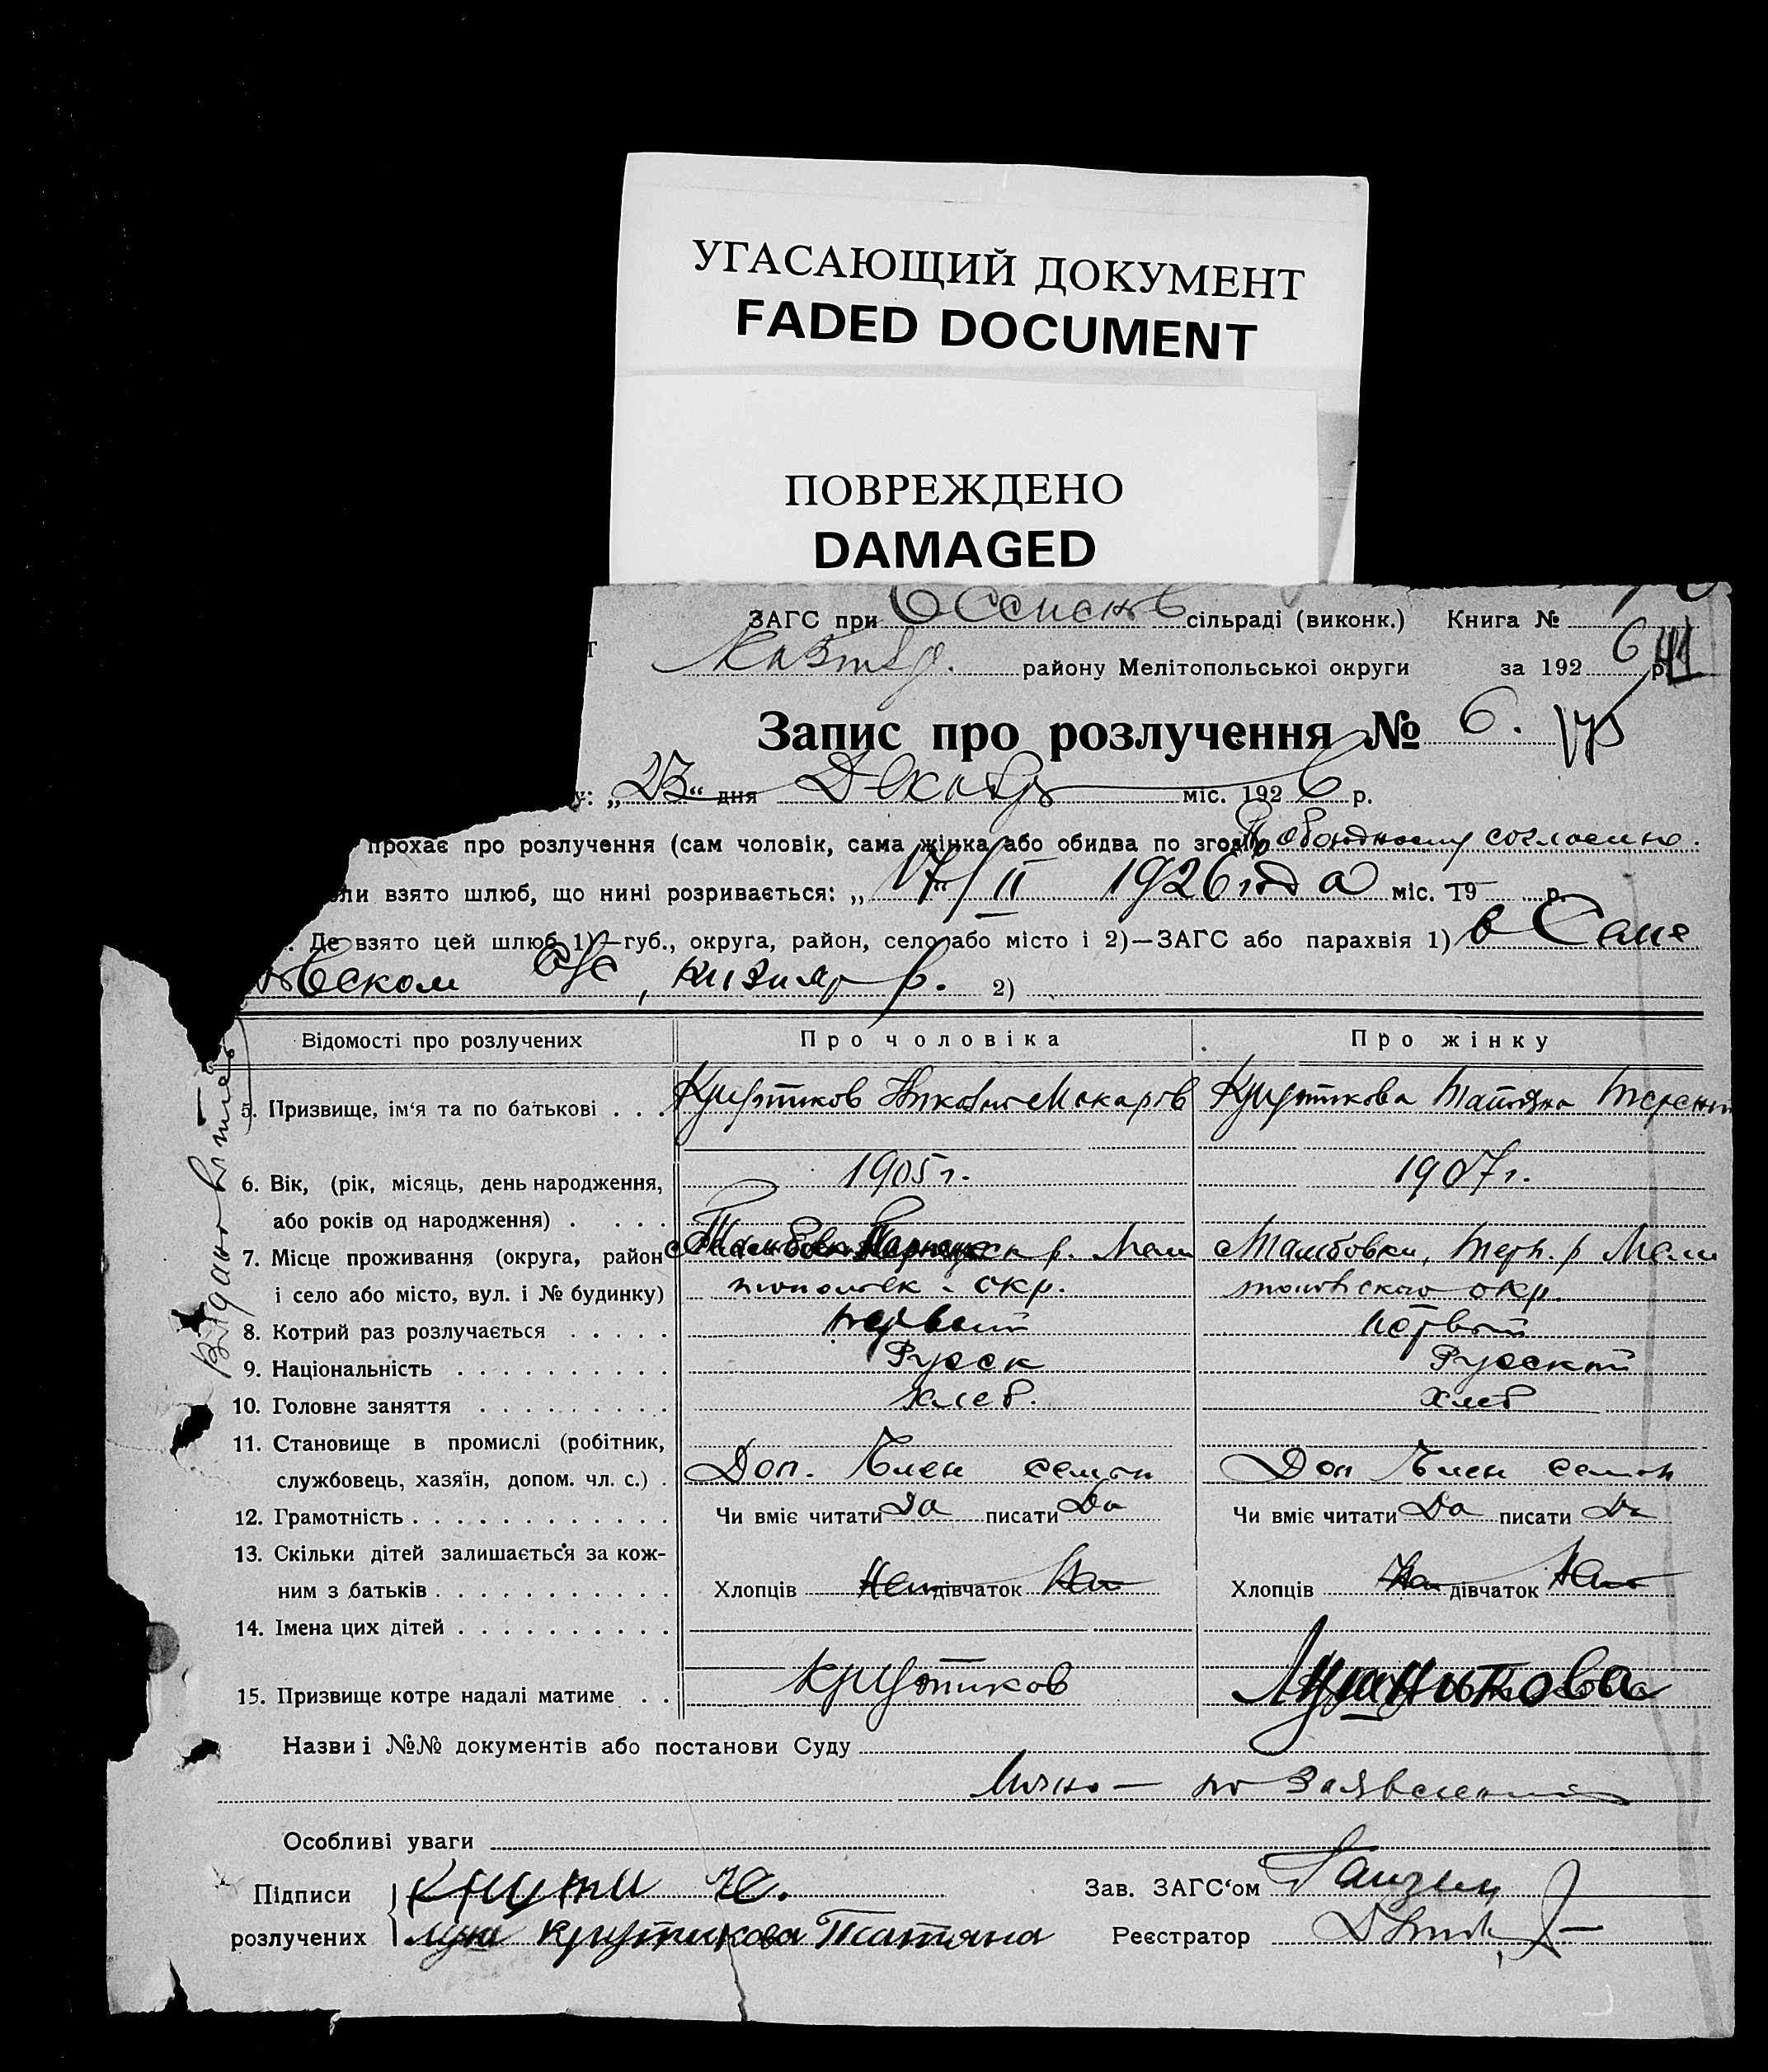 УГАСАЮЩИЙ ДОКУМЕНТ
FADED DOCUMENT
ПОВРЕЖДЕНО
DAMAGED
ЗАГС при сільраді (виконк.) Книга №
району Мелітопольської округи за 1926 р.
Запис про розлучення № 6.
у: „23“ дня Декабр міс. 1926 р.
прохає про розлучення (сам чоловік, сама жінка або обидва по згоді) По обоюдному согласию.
ли взято шлюб, що нині розривається: „17/II 1926 года міс. 19 р.
Де взято цей шлюб 1)—губ., округа, район, село або місто і 2)—ЗАГС або парахвія 1) в Семе
р. 2)
Відомості про розлучених Про чоловіка Про жінку
5. Призвище, ім'я та по батькові . . . Крутиков Макаров Крутикова Татьяна
6. Вік, (рік, місяць, день народження, 1905 г. 1907 г.
або років од народження) . . . .
7. Місце проживання (округа, район р. Мели Тамбовки, Терп. р Мели
і село або місто, вул. і № будинку) топольск. окр. топольского окр.
8. Котрий раз розлучається . . . . . первый первый
9. Національність . . . . . . . . . . Русск Русский
10. Головне заняття . . . . . . . . . хлеб. хлеб
11. Становище в промислі (робітник,
службовець, хазяїн, допом. чл. с.) . Доп. Член семьи Доп Член семьи
12. Грамотність . . . . . . . . . . . . Чи вміє читати Да писати Да Чи вміє читати Да писати Да
13. Скільки дітей залишається за кож-
ним з батьків . . . . . . . . . . . Хлопців Нет дівчаток Нет Хлопців Нет дівчаток Нет
14. Імена цих дітей . . . . . . . . . .
15. Призвище котре надалі матиме . . Крутиков
Назви і №№ документів або постанови Суду
Лично — по заявлению
Особливі уваги
Підписи Крути Зав. ЗАГС'ом
розлучених Крутикова Татяна Реєстратор